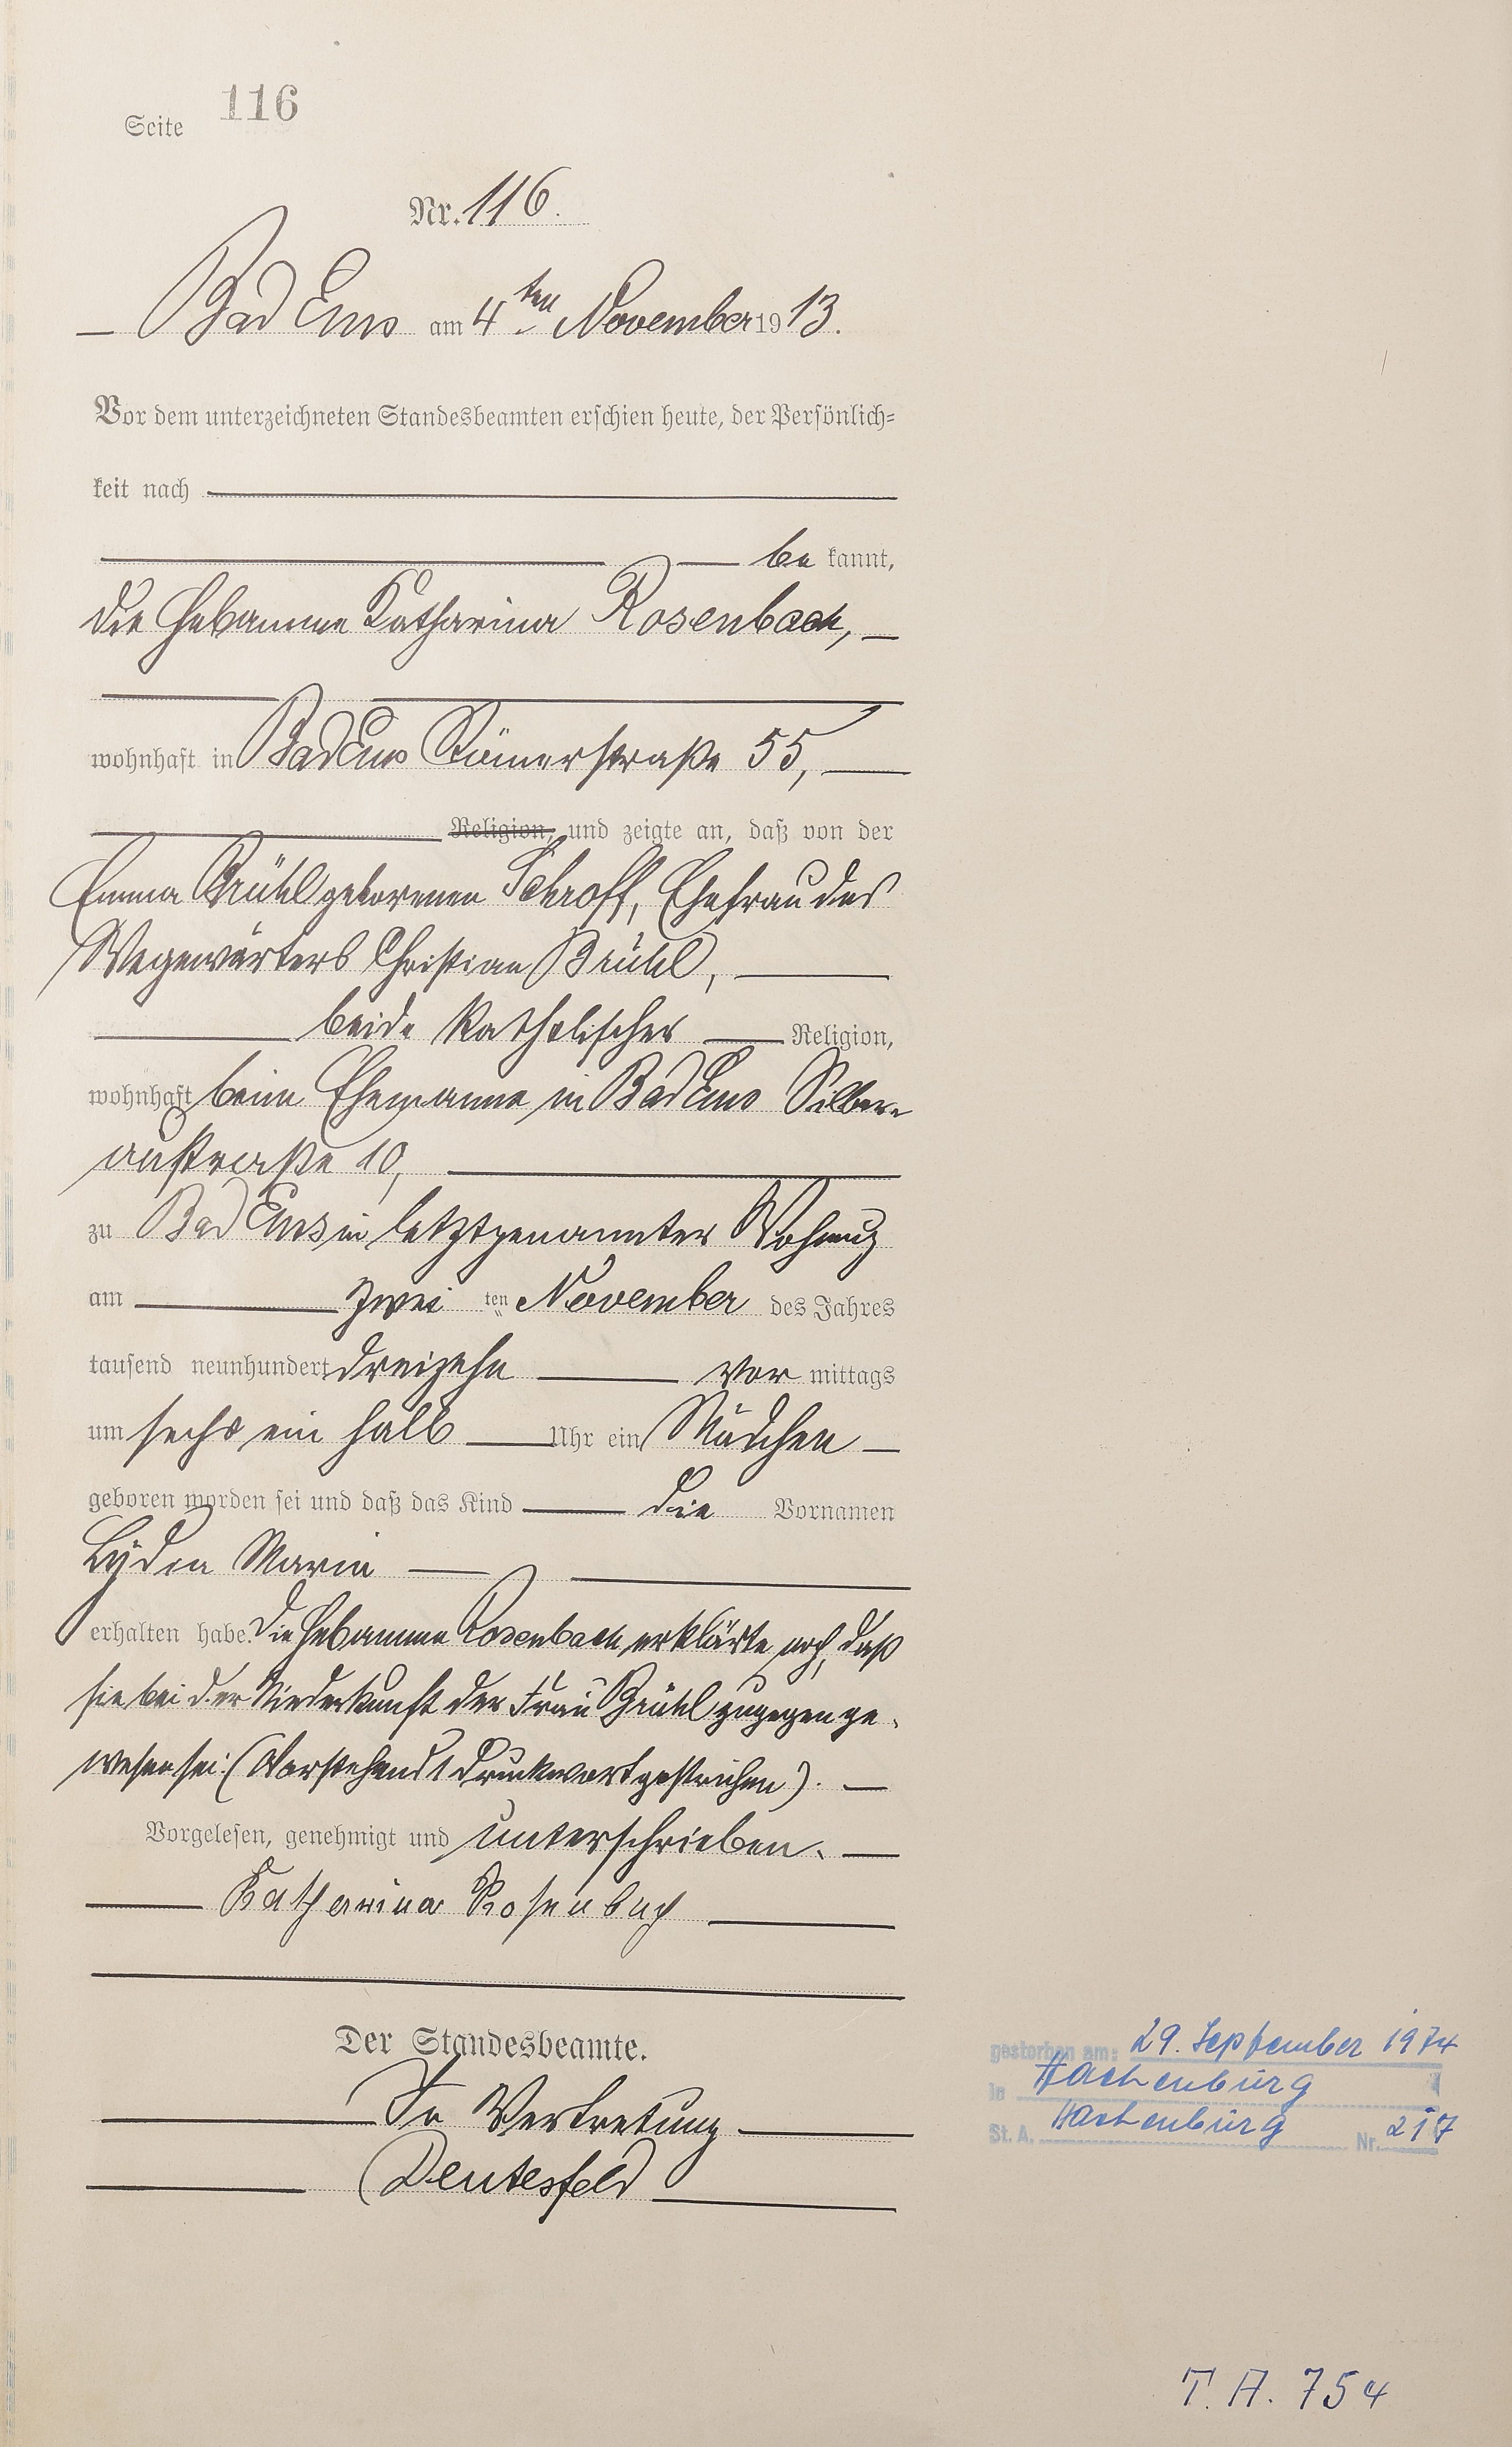 Seite 116
Nr. 116.
Bad Ems am 4ten November 1913.
Vor dem unterzeichneten Standesbeamten erschien heute, der Persönlich=
keit nach
be kannt,
die Hebamme Katharina Rosenbach,
wohnhaft in Bad Ems Römerstraße 55,
Religion, und zeigte an, daß von der
Emma Brühl geborenen Schroff, Ehefrau des
Wegewärters Christian Brühl,
beide katholischer Religion,
wohnhaft beim Ehemanne in Bad Ems Silber-
austraße 10,
zu Bad Ems in letztgenannter Wohnung
am zwei ten November des Jahres
tausend neunhundert dreizehn vor mittags
um sechs ein halb Uhr ein Mädchen
geboren worden sei und daß das Kind die Vornamen
Lydia Maria
erhalten habe. Die Hebamme Rosenbach erklärte noch, daß
sie bei der Niederkunft der Frau Brühl zugegen ge-
wesen sei. (Vorstehend 1 Druckwort gestrichen).
Vorgelesen, genehmigt und unterschrieben.
Katharina Rosenbach
Der Standesbeamte.
In Vertretung
Deutesfeld
gestorben am: 29. September 1974
in Hachenburg
St. A. Hachenburg Nr. 217
T. A. 754